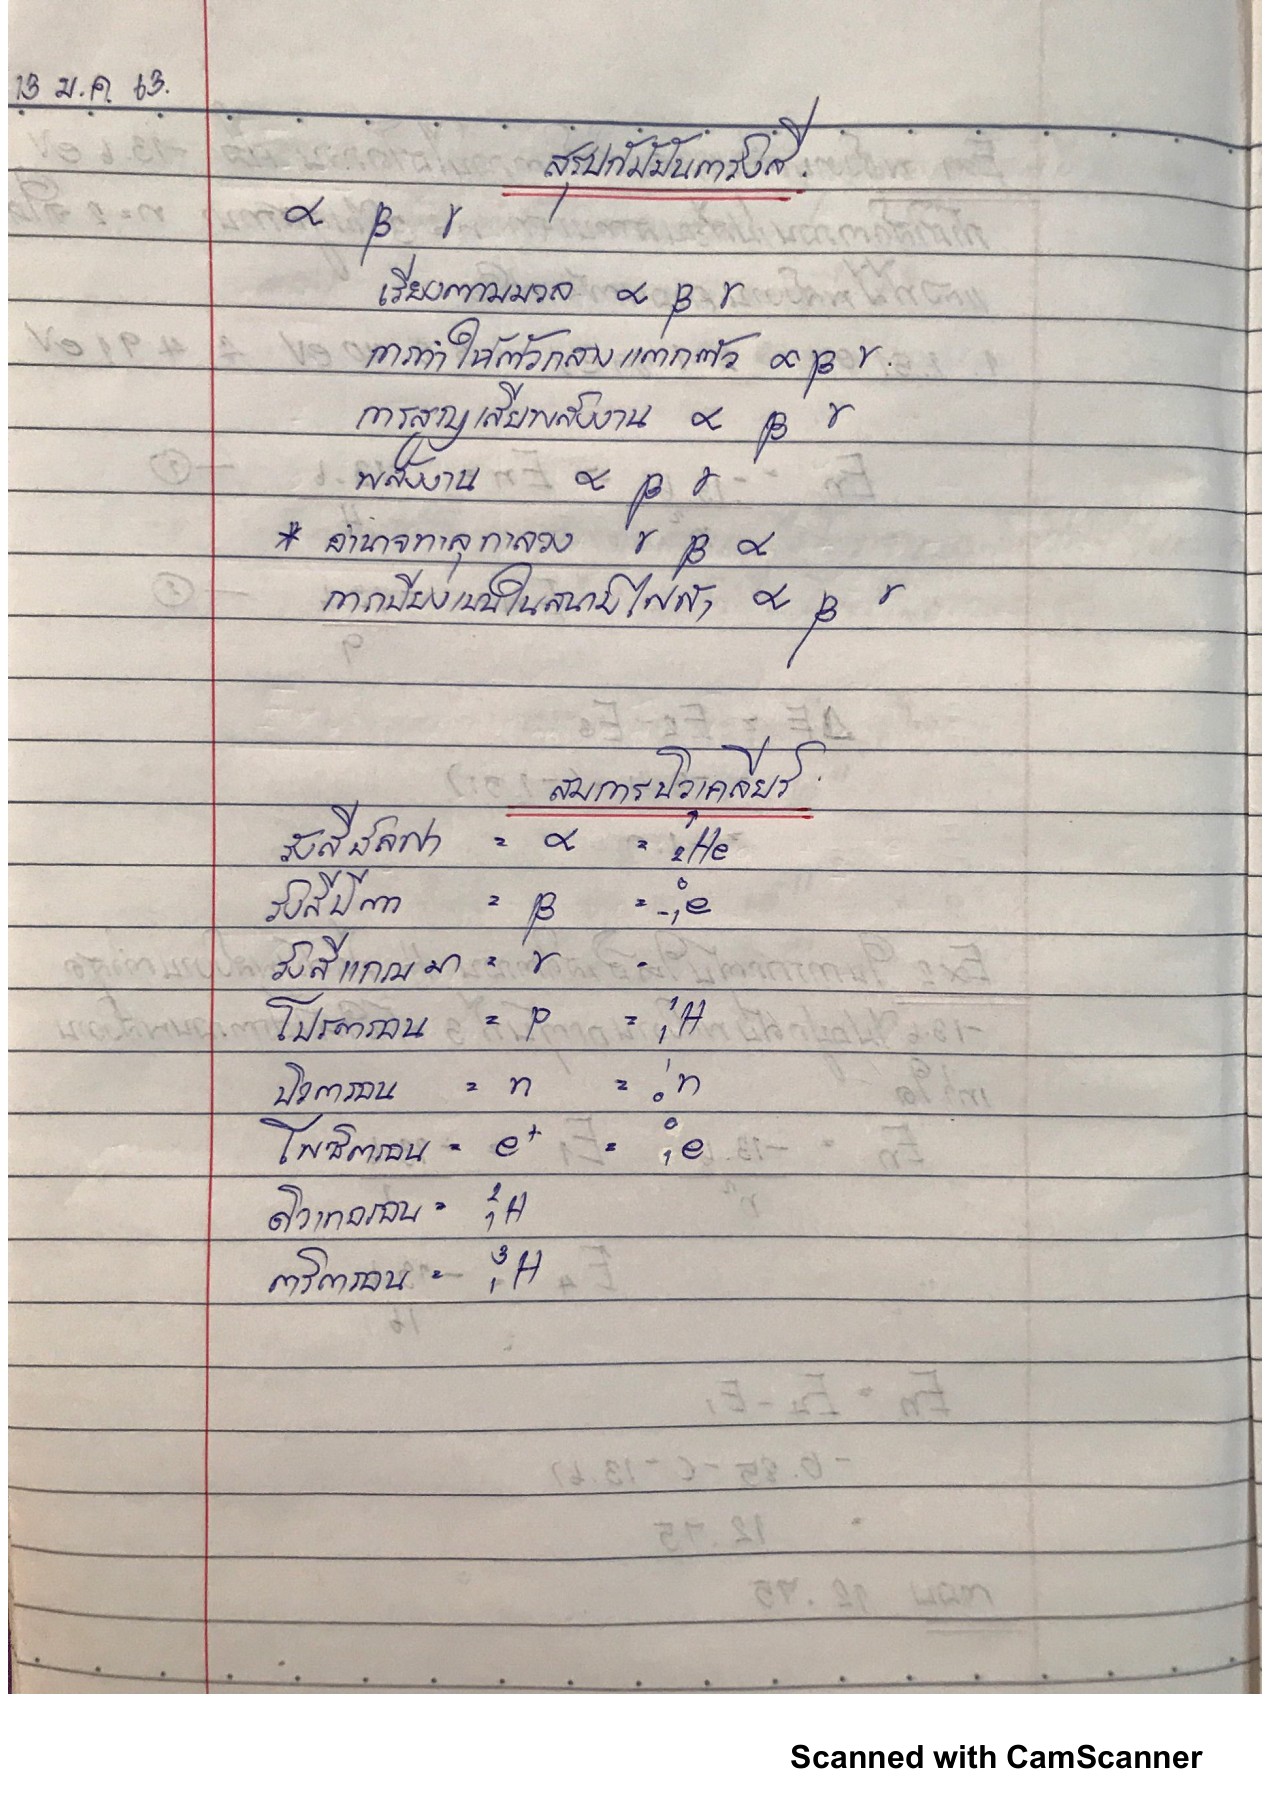 13 ม.ค. 63.
สรุปกัมมันตรังสี.
α β γ
เรียงตามมวล α β γ
การทำให้ตัวกลางแตกตัว α β γ.
การสูญเสียพลังงาน α β γ
พลังงาน α β γ
* อำนาจทะลุทะลวง γ β α
การเบี่ยงเบนในสนามไฟฟ้า α β γ
สมการนิวเคลียร์.
รังสีอัลฟา = α = ₂He
รังสีบีตา = β = ⁰₋₁e
รังสีแกมมา = γ -
โปรตรอน = p = ¹₁H
นิวตรอน = n = ¹₀n
โพซิตรอน = e⁺ = ⁰₁e
ดิวเทอรอน = ²₁H
ตริตรอน = ³₁H
Scanned with CamScanner